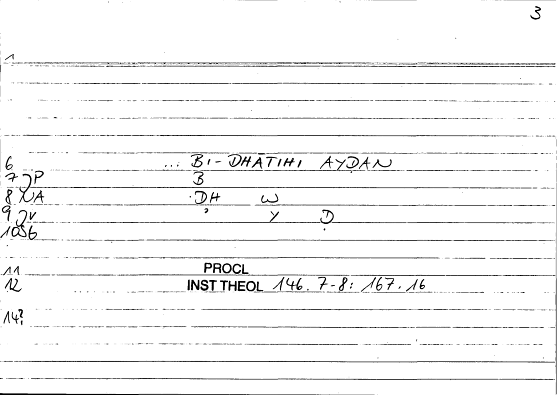 3
1
6 ... BI-DHĀTIHI AYḌAN
7 JP B
8 NA DH W
9 JV ʾ Y Ḍ
10 SG
11 PROCL
12 INST THEOL 146. 7-8: 167.16
14?